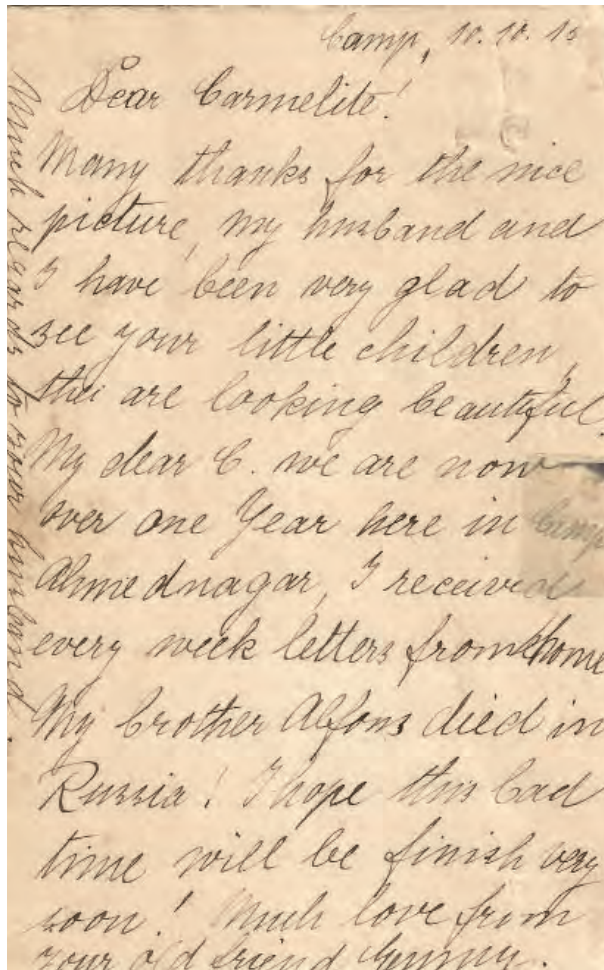 Camp, 10.10.15
Dear Carmelite!
Many thanks for the nice
picture, my husband and
I have been very glad to
see your little children,
thei are looking beautiful.
My dear C. we are now
over one Year here in Camp
Ahmednagar, I received
every week letters from home
My brother Alfons died in
Russia! I hope this bad
time will be finish very
soon! Much love from
your old friend
Much regards to your husband.